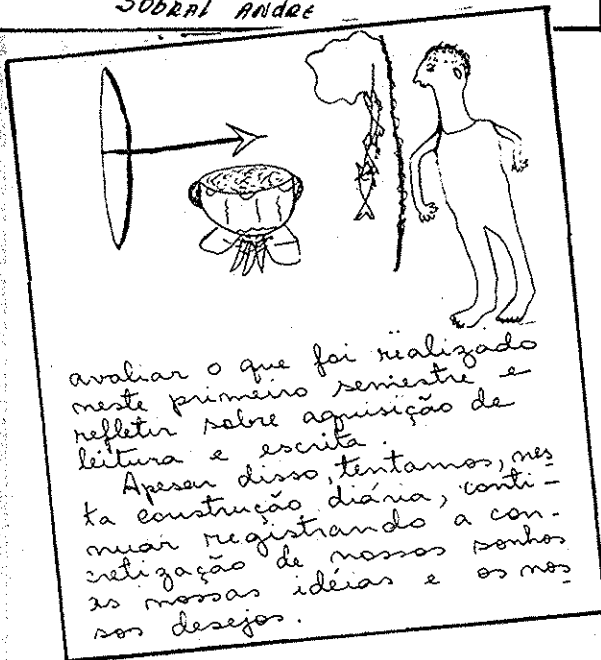 SOBRAL ANDRÉ
avaliar o que foi realizado
neste primeiro semestre e
refletir sobre aquisição de
leitura e escrita.
Apesar disso, tentamos, nes
ta construção diária, conti-
nuar registrando a con-
cretização de nossos sonhos
as nossas idéias e os nos
sos desejos.